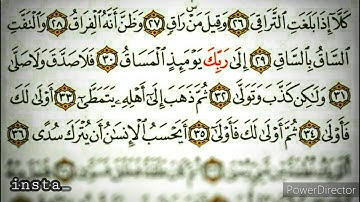 كَلَّا إِذَا بَلَغَتِ التَّرَاقِيَ ٢٦ وَقِيلَ مَنْ رَاقٍ ٢٧ وَظَنَّ أَنَّهُ الْفِرَاقُ ٢٨ وَالْتَفَّتِ
السَّاقُ بِالسَّاقِ ٢٩ إِلَىٰ رَبِّكَ يَوْمَئِذٍ الْمَسَاقُ ٣٠ فَلَا صَدَّقَ وَلَا صَلَّىٰ
٣١ وَلَٰكِنْ كَذَّبَ وَتَوَلَّىٰ ٣٢ ثُمَّ ذَهَبَ إِلَىٰ أَهْلِهِ يَتَمَطَّىٰ ٣٣ أَوْلَىٰ لَكَ
فَأَوْلَىٰ ٣٤ ثُمَّ أَوْلَىٰ لَكَ فَأَوْلَىٰ ٣٥ أَيَحْسَبُ الْإِنْسَانُ أَنْ يُتْرَكَ سُدًى ٣٦
insta_
PowerDirector